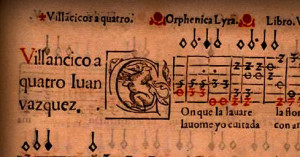 Villācico a quatro. Orphenica Lyra. Libro. V
Villancico a
quatro Iuan
vazquez.
Con que la lauare
lauome yo cuitada
la flor
con a